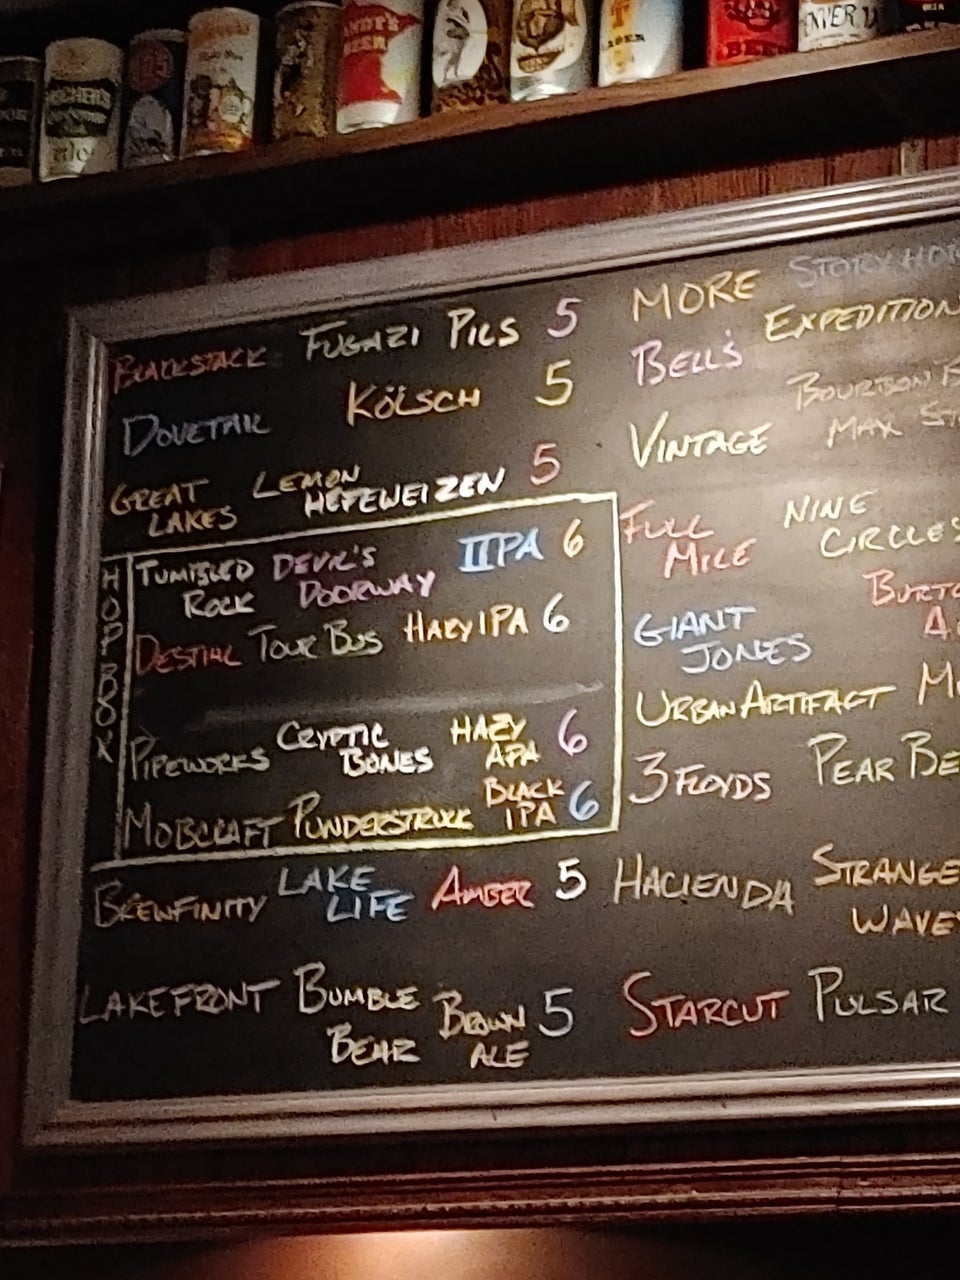 BLACKSTACK FUGAZI PILS 5
DOVETAIL KÖLSCH 5
GREAT LAKES LEMON HEFEWEIZEN 5
HOPBOX
TUMBLED ROCK DEVIL'S DOORWAY IIPA 6
DESTIHL TOUR BUS HAZY IPA 6
PIPEWORKS CRYPTIC BONES HAZY APA 6
MOBCRAFT PUNDERSTRUCK BLACK IPA 6
BREWFINITY LAKE LIFE AMBER 5
LAKEFRONT BUMBLE BEAR BROWN ALE 5
MORE
BELL'S EXPEDITION
VINTAGE BOURBON MAX
FULL MILE NINE CIRCLES
GIANT JONES
URBAN ARTIFACT
3 FLOYDS PEAR
HACIENDA STRANGE WAVE
STARCUT PULSAR